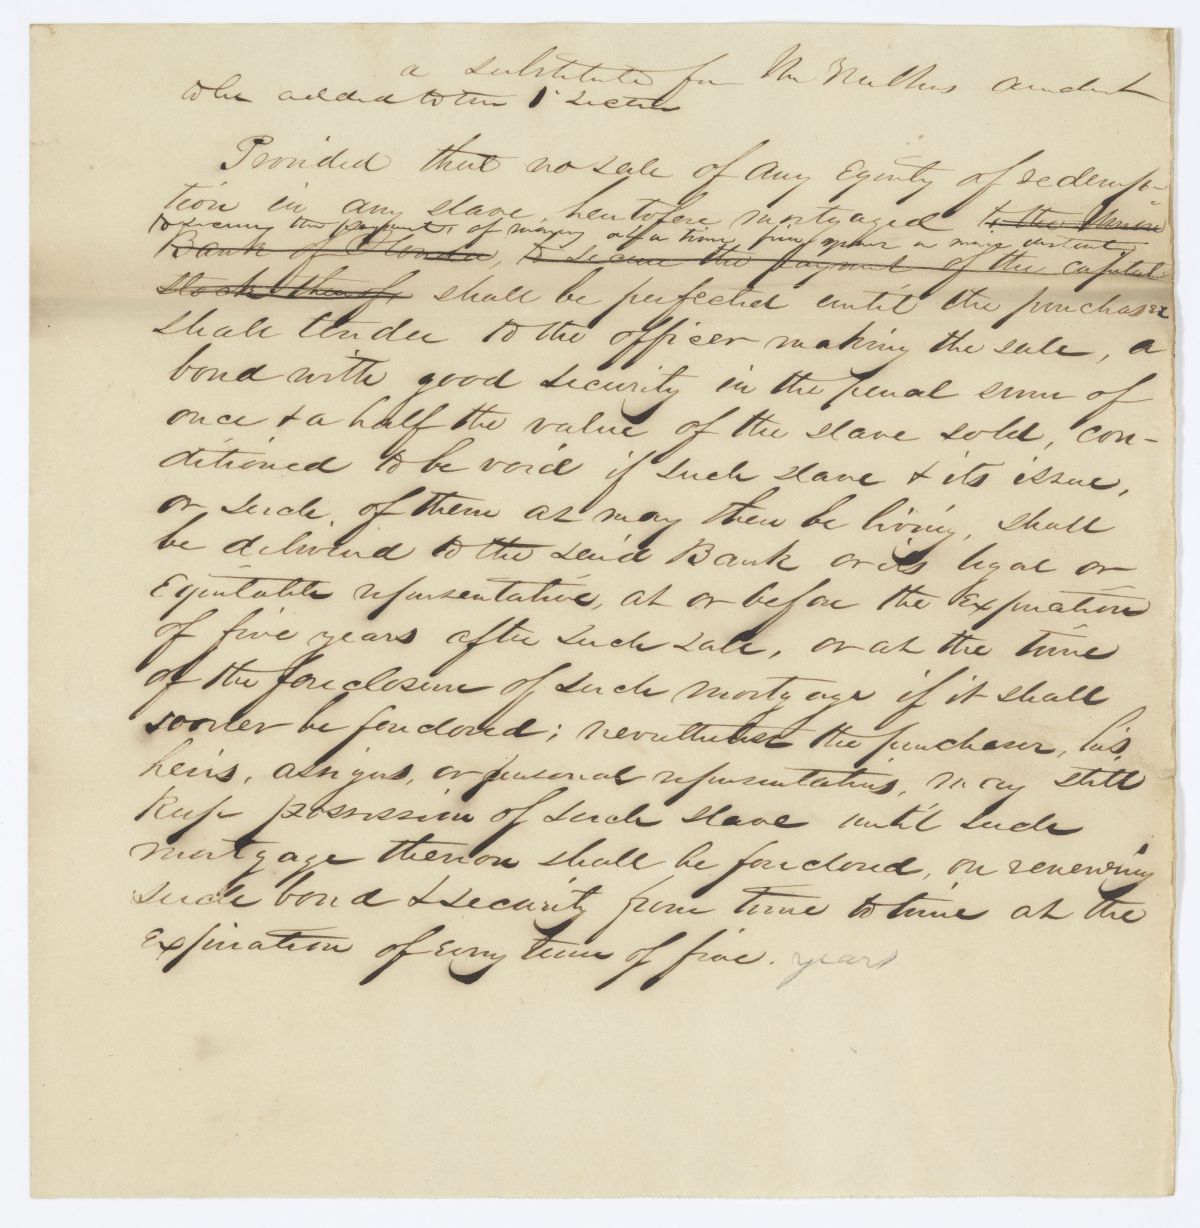 a substitute for Mr amdmt
to be added to the 1st Section
Provided that no sale of any Equity of redemp-
tion in any slave, heretofore mortgaged to the Union
to secure the payment of money at a time five years or more distant
Bank of Florida, to secure the payment of the capital
stock thereof shall be perfected until the purchaser
shall tender to the officer making the sale, a
bond with good security in the penal sum of
once & a half the value of the slave sold, con-
ditioned to be void if such slave & its issue,
or such of them as may then be living, shall
be delivered to the said Bank or its legal or
Equitable representative, at or before the Expiration
of five years after such sale, or at the time
of the foreclosure of such mortgage if it shall
sooner be foreclosed; nevertheless the purchaser, his
heirs, assigns, or personal representatives, may still
keep possession of such slave until such
mortgage thereon shall be foreclosed, on renewing
such bond & security from time to time at the
Expiration of every term of five. years